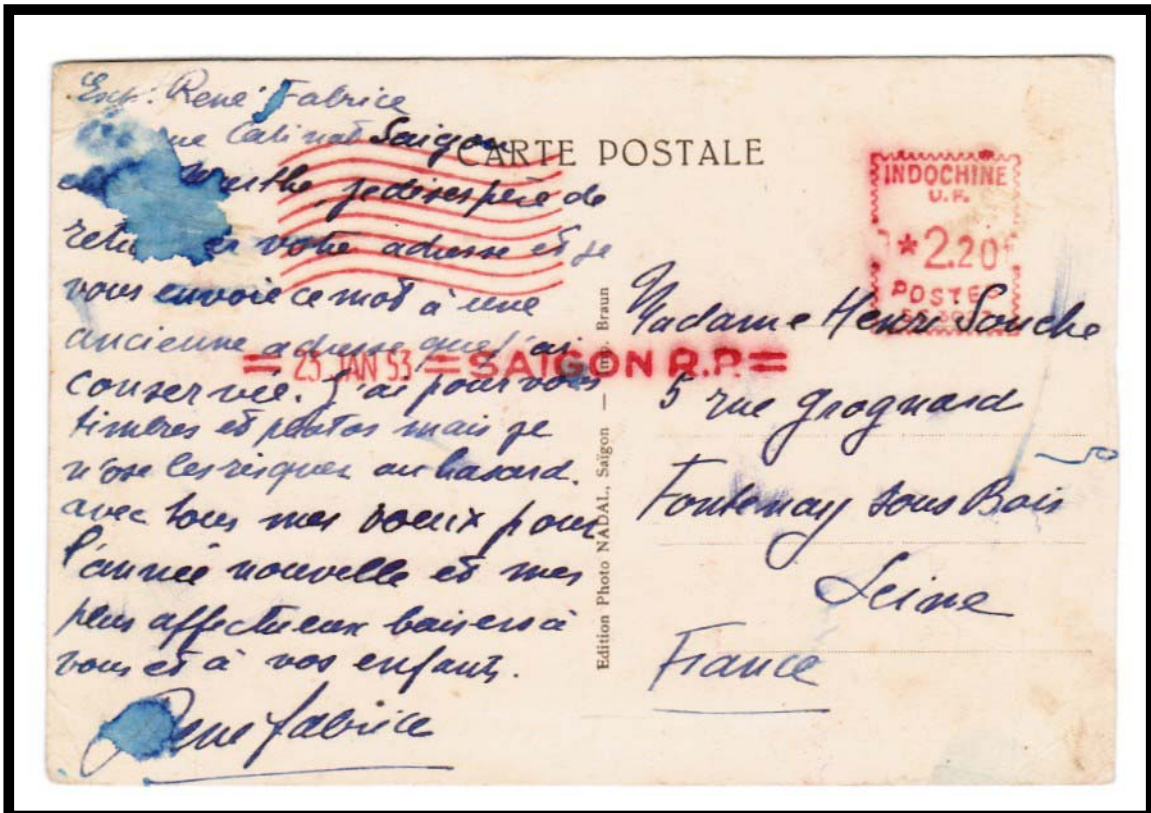 Exp. René Fabrice
rue Catinat Saigon
Marthe, je désespère de
votre adresse et je
vous envoie ce mot à une
ancienne adresse que j'ai
conservée. J'ai pour vous
timbres et photos mais je
n'ose les risquer au hasard.
avec tous mes voeux pour
l'année nouvelle et mes
plus affectueux baisers à
vous et à vos enfants.
René Fabrice
CARTE POSTALE
INDOCHINE
U.F.
*2.20
POSTES
= 23 JAN 53 = SAIGON R.P. =
Edition Photo NADAL, Saïgon — Imp. Braun
Madame Henri Souche
5 rue Grognard
Fontenay sous Bois
Seine
France